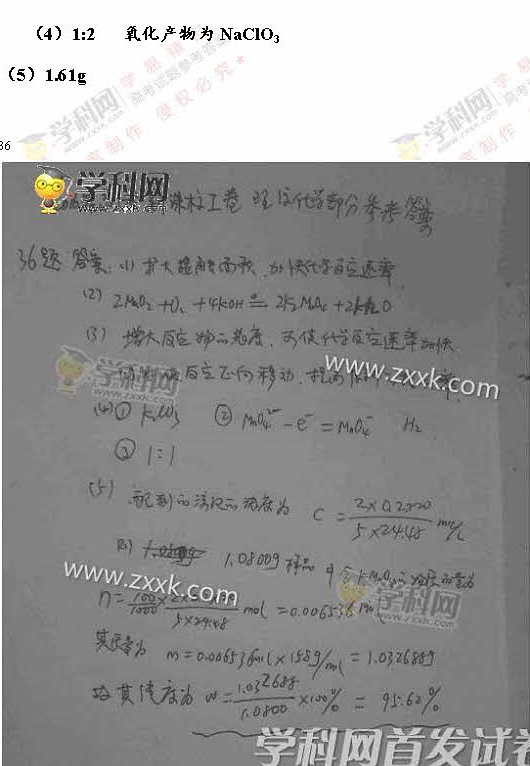 (4) 1:2 氧化产物为 NaClO₃
(5) 1.61g
36
学科网
www.zxxk.com
课标I卷 理综化学部分参考答案
36题 答案:(1) 扩大接触面积,加快化学反应速率
(2) 2MnO₂+O₂+4KOH=2K₂MnO₄+2H₂O
(3) 增大反应物的浓度,可使化学反应速率加快
反应正向移动,提高
(4) ① ② MnO₄²⁻-e⁻=MnO₄⁻ H₂
③ 1:1
(5) 配制的溶液的浓度为 C=2×0.2×20/5×24.48 mol/L
则 1.0800g样品中含KMnO₄的物质的量为
n=100/1000× 5×24.48 mol=0.006536mol
其质量为 m=0.006536mol×158g/mol=1.032688g
故其纯度为 w=1.032688/1.0800×100%=95.62%
www.zxxk.com
www.zxxk.com
学科网首发试卷